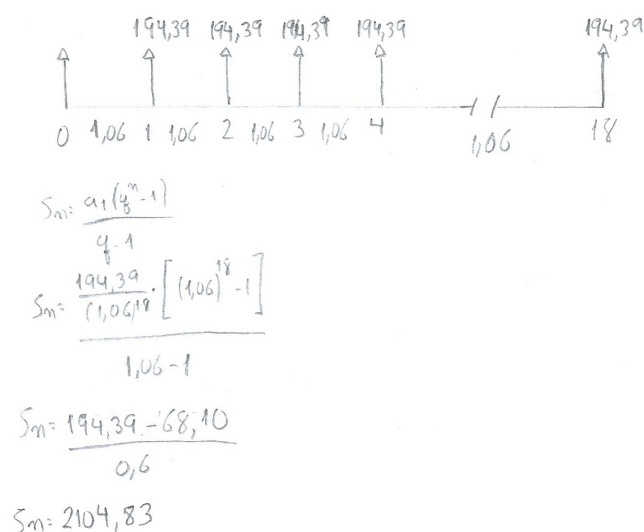 194,39 194,39 194,39 194,39 194,39
0 1,06 1 1,06 2 1,06 3 1,06 4 1,06 18
Sn= a1(q^n-1)
q-1
Sn= 194,39/(1,06)^18 · [(1,06)^18-1]
1,06-1
Sn= 194,39-68,10
0,6
Sn= 2104,83